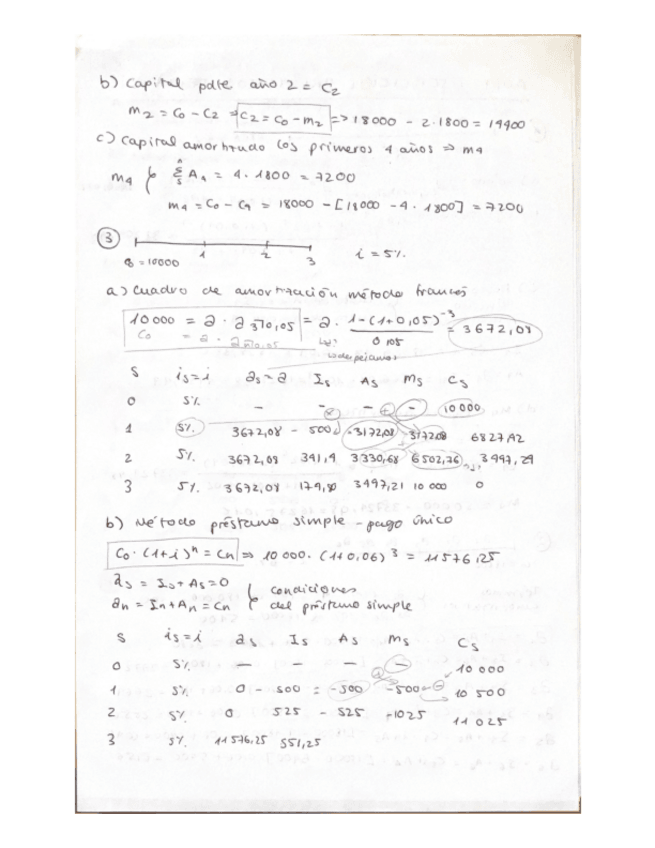 b) Capital pdte año 2 = C2
M2 = C0 - C2 => C2 = C0 - m2 => 18000 - 2·1800 = 14400
c) Capital amortizado los primeros 4 años => m4
m4 { Σ As = 4·1800 = 7200
m4 = C0 - C4 = 18000 - [18000 - 4·1800] = 7200
3
1 2 3 i = 5%
= 10000
a) Cuadro de amortización método francés
10000 = a · a3┐0,05 = a · 1-(1+0,05)^-3 / 0,05 = 3672,08
C0 = a · an┐0,05
S is=i as=a Is As Ms Cs
0 5% - - - - 10000
1 5% 3672,08 - 500 = 3172,08 3172,08 6827,92
2 5% 3672,08 341,4 3330,68 6502,76 3497,24
3 5% 3672,08 3497,21 10000 0
b) Método préstamo simple - pago único
C0·(1+i)^n = Cn => 10000·(1+0,06)^3 = 11576,25
as = Is + As = 0 } condiciones
an = In + An = Cn } del préstamo simple
S is=i as Is As Ms Cs
0 5% - - - - 10000
1 5% 0 - 500 = -500 -500 10500
2 5% 0 525 - 525 -1025 11025
3 5% 11576,25 551,25